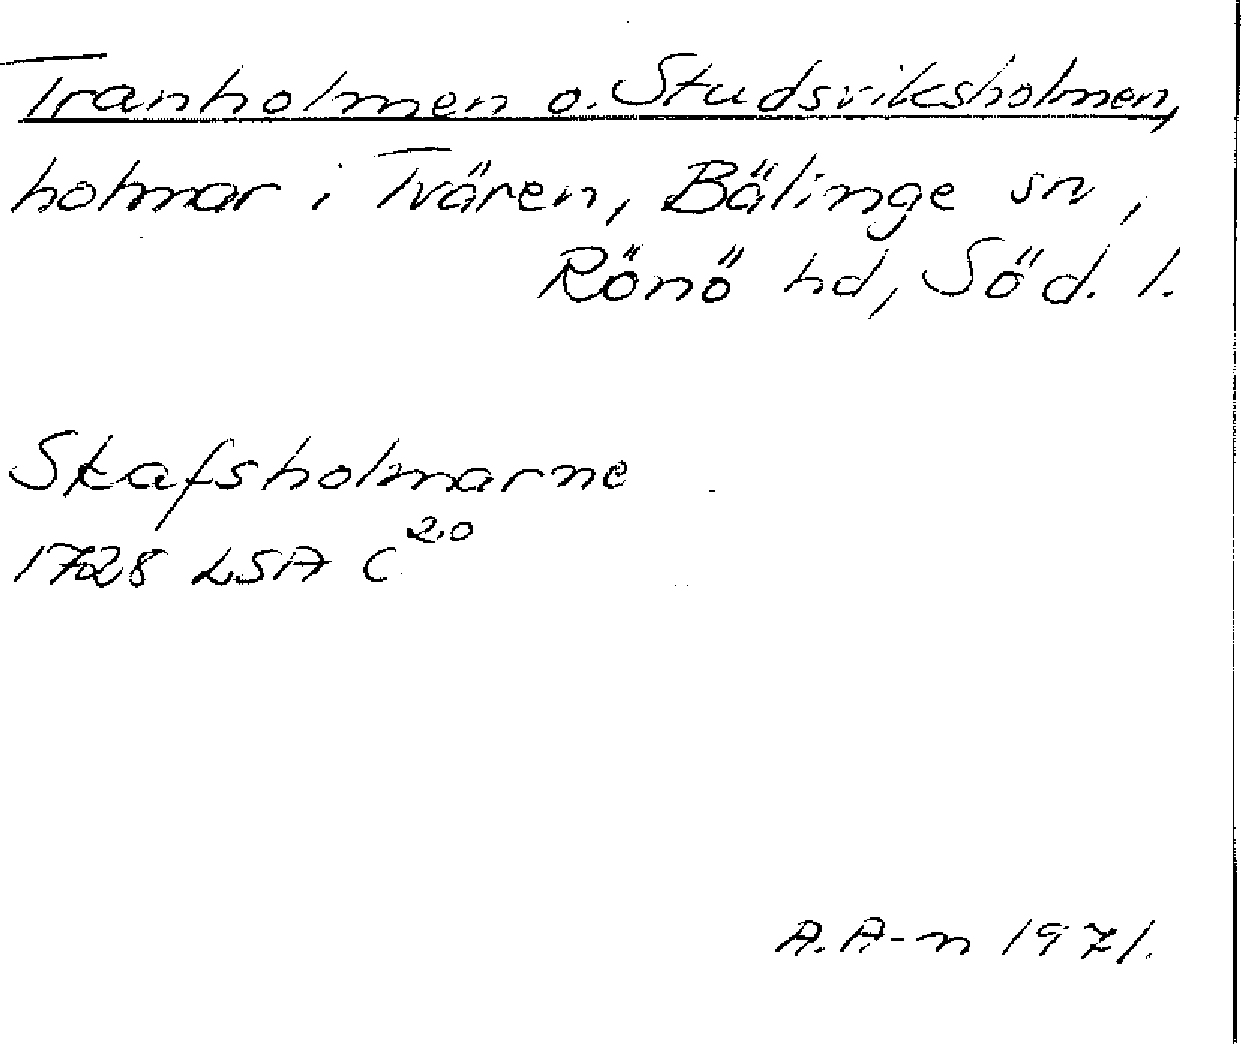 Tranholmen o. Studsviksholmen,
holmar i Tvären, Bälinge sn,
Rönö hd, Söd. l.
Skafsholmarne
1728 LSA C 20
A. A-n 1971.